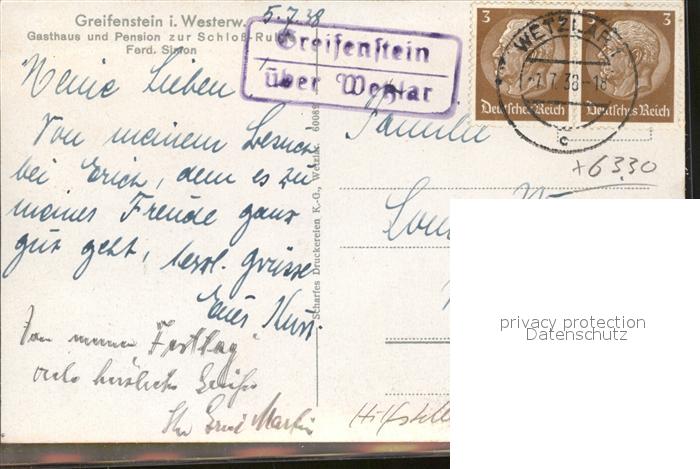 Greifenstein i. Westerw.
Gasthaus und Pension zur Schloß-Ruine
Ferd. Simon
5.7.38
Greifenstein
über Wetzlar
3 3
Deutsches Reich Deutsches Reich
WETZLAR
-7.7.38-18
c
Meine Lieben
Von meinem Besuch
bei Erich, dem es zu
meiner Freude ganz
gut geht, herzl. Grüsse
Euer Kurt.
Festtag
viele herzliche Grüße
Ihr Martin
Scharfes Druckereien K.-G., Wetzlar.
Familie
+6330
Hilfstelle
privacy protection
Datenschutz